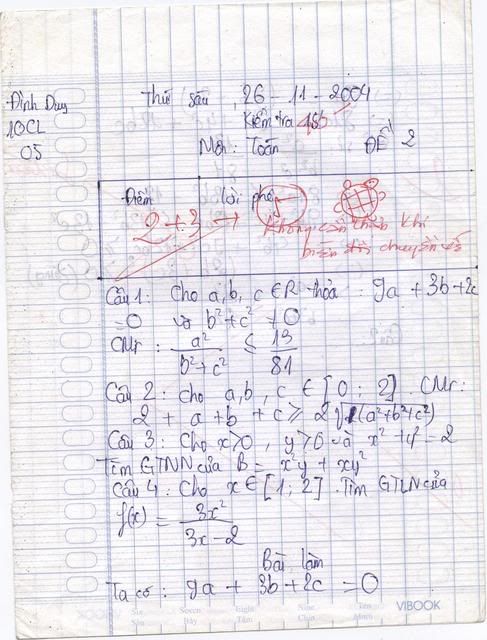 Đình Duy
10CL
05
Thứ sáu , 26 - 11 - 2004
Kiểm tra
Môn : Toán ĐỀ 2
Điểm lời phê
2 + 3
Không cẩn thận khi
biến đổi chuyển vế
Câu 1 : Cho a, b, c ∈ R thỏa : 9a + 3b + 2c
= 0 và b² + c² ≠ 0
CMr : a² / (b² + c²) ≤ 13 / 81
Câu 2 : Cho a, b, c ∈ [0 ; 2] . CMr :
2 + a + b + c ≥ 2√(a² + b² + c²)
Câu 3 : Cho x > 0, y > 0 và x² + y² = 2
Tìm GTNN của B = x²y + xy²
Câu 4 : Cho x ∈ [1 ; 2] . Tìm GTLN của
f(x) = 3x² / (3x - 2)
Bài làm
Ta có : 9a + 3b + 2c = 0
VIBOOK